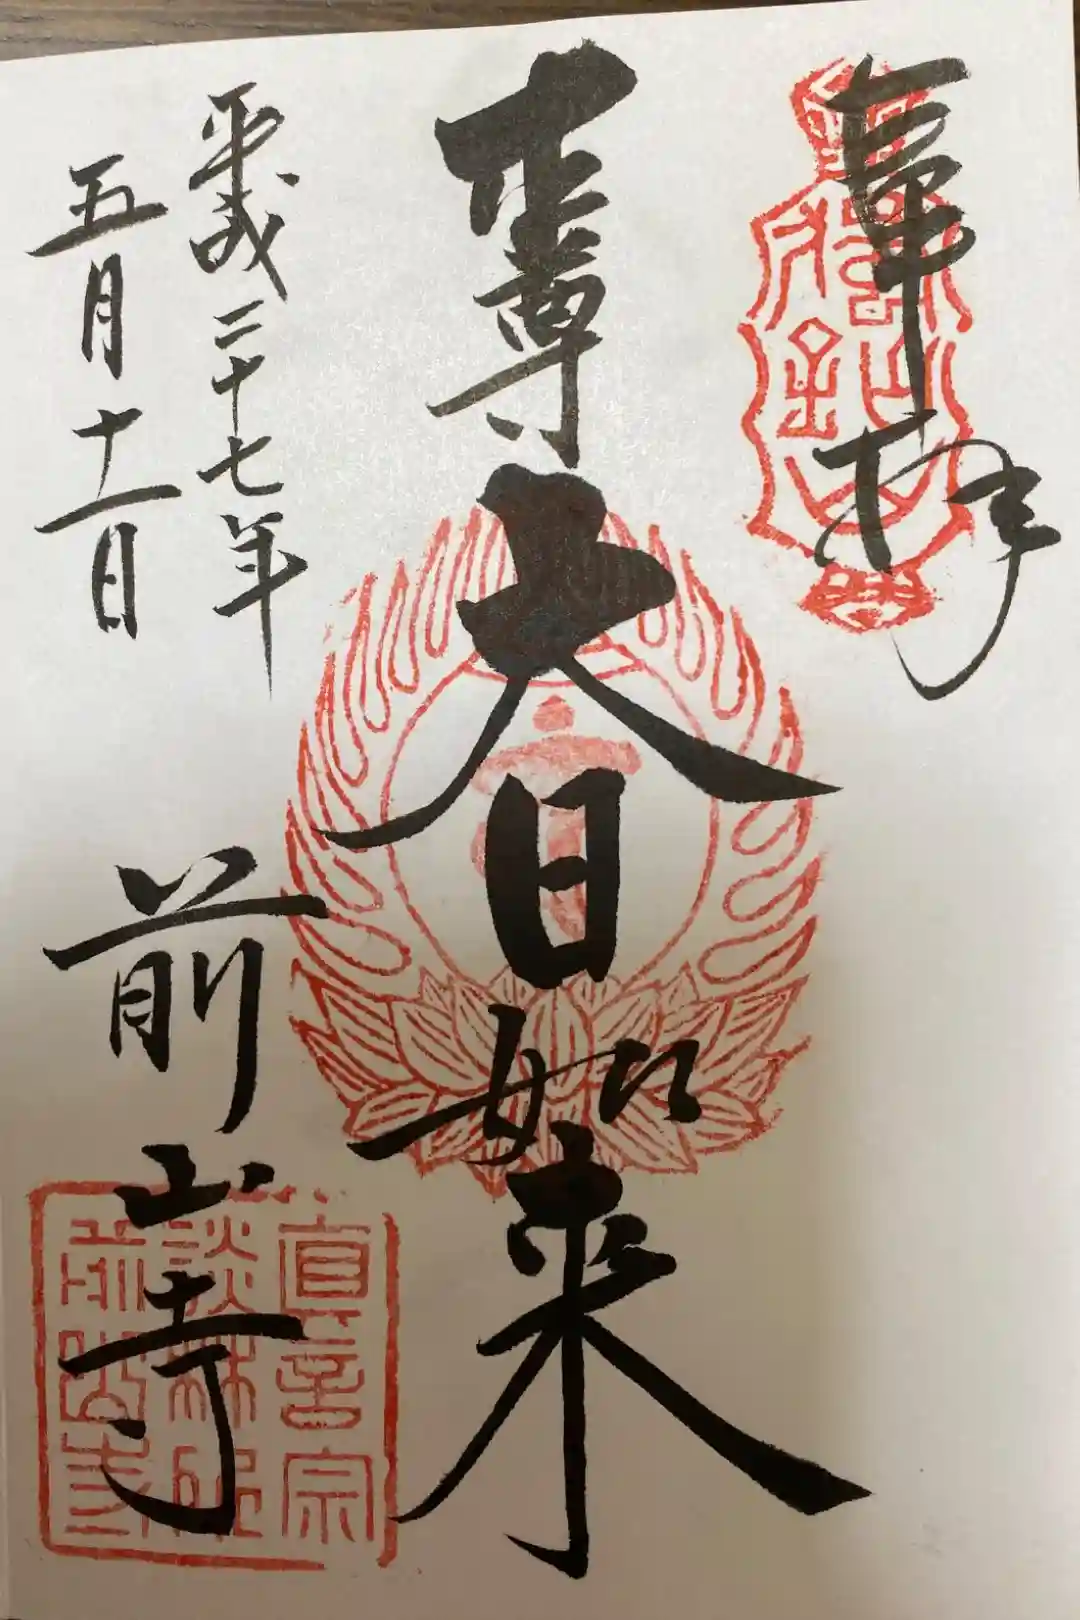 奉拝
本尊
大日如来
平成二十七年
五月十一日
前山寺
真言宗
談林
前山寺